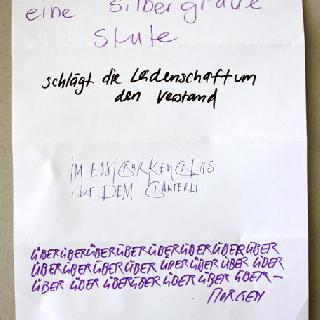 eine Silbergraue
Stute
schlägt die Leidenschaft um
den Verstand
IM ESSIGGURKENGLAS
AUF DEM
ÜBERÜBERÜBERÜBERÜBERÜBERÜBERÜBER
ÜBERÜBERÜBERÜBER ÜBERÜBER ÜBER ÜBER
ÜBER ÜBER ÜBERÜBER ÜBER ÜBER ÜBER-
MORGEN